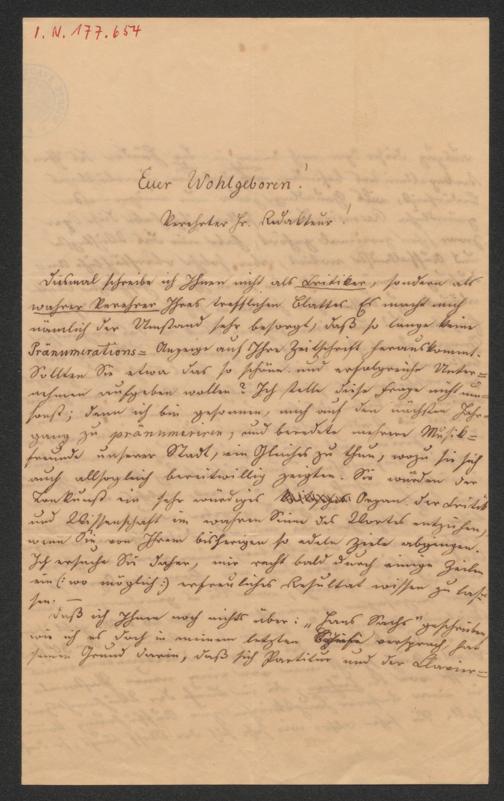 I. N. 177.654
Euer Wohlgeboren!
Verehrter Hr. Redakteur!
Diesmal schreibe ich Ihnen nicht als Critiker, sondern als
wahrer Verehrer Ihres trefflichen Blattes. Es macht mich
nämlich der Umstand sehr besorgt, daß so lange keine
Pränumerations= Anzeige auf Ihre Zeitschrift herauskommt.
Sollten Sie etwa das so schöne und erfolgreiche Unter=
nehmen aufgeben wollen? Ich stelle diese Frage nicht um=
sonst; denn ich bin gesonnen, auch auf den nächsten Jahr=
gang zu pränumeriren, und beredete mehrere Musik=
freunde unserer Stadt, ein Gleiches zu thun, wozu sie sich
auch allsogleich bereitwillig zeigten. Sie würden der
Tonkunst ein sehr würdiges Organ der Critik
und Wissenschaft im wahren Sinne des Wortes entziehen,
wenn Sie von Ihrem bisherigen so edeln Ziele abgingen.
Ich ersuche Sie daher, mir recht bald durch einige Zeilen
ein (: wo möglich :) erfreuliches Resultat wissen zu las=
sen. —
Daß ich Ihnen noch nichts über: „Hans Sachs" geschrieben,
wie ich es doch in meinem letzten versprach, hat
seinen Grund darin, daß sich Partitur und der Clavier=